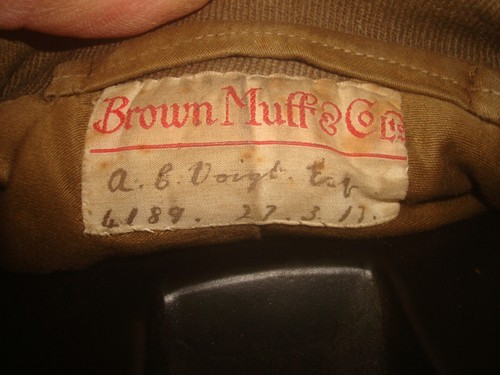 Brown Muff & Co Ltd
A. B. Voigt. Esq
4189. 27.3.17.